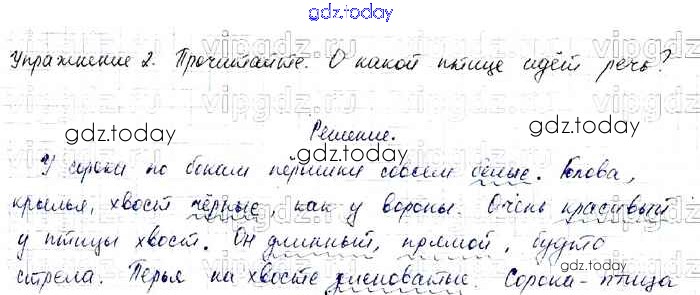 gdz.today
Упражнение 2. Прочитайте. О какой птице идёт речь?
gdz.today gdz.today
Решение.
У сороки по бокам пёрышки совсем белые. Голова,
крылья, хвост чёрные, как у вороны. Очень красивый
у птицы хвост. Он длинный, прямой, будто
стрела. Перья на хвосте зеленоватые. Сорока - птица
gdz.today